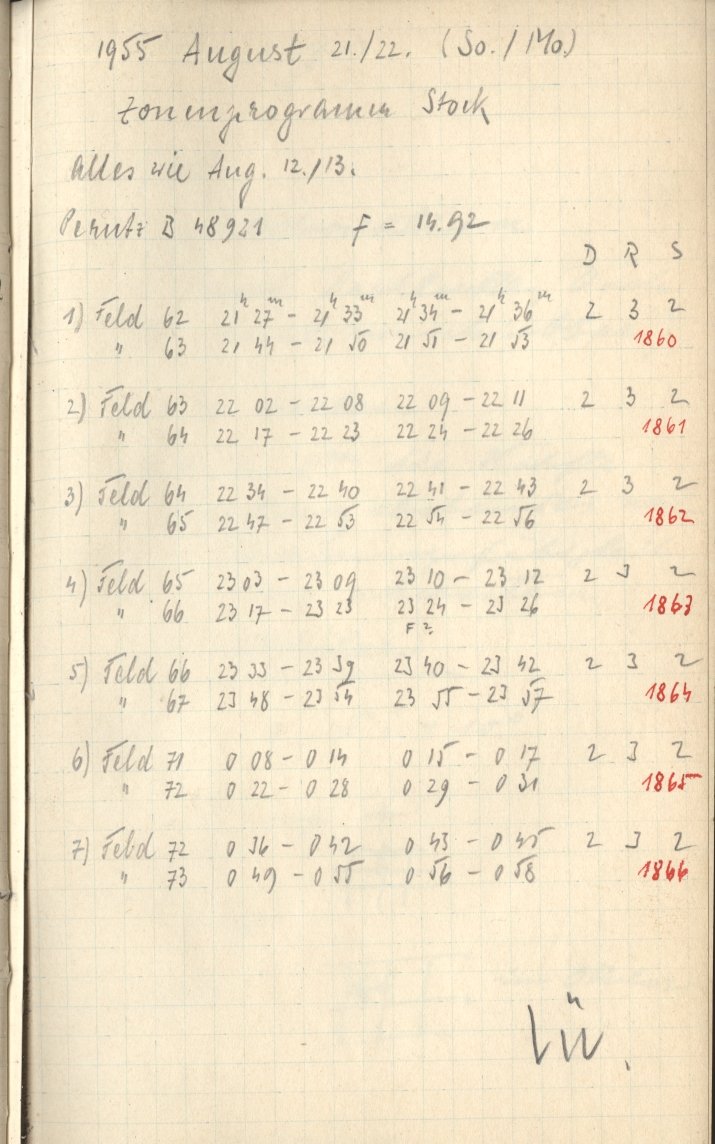 1955 August 21./22. (So./Mo.)
Zonenprogramm Stock
Alles wie Aug. 12./13.
Perutz B 48921 F = 14.92
D R S
1) Feld 62 21ʰ 27ᵐ - 21ʰ 33ᵐ 21ʰ 34ᵐ - 21ʰ 36ᵐ 2 3 2
" 63 21 44 - 21 50 21 51 - 21 53 1860
2) Feld 63 22 02 - 22 08 22 09 - 22 11 2 3 2
" 64 22 17 - 22 23 22 24 - 22 26 1861
3) Feld 64 22 34 - 22 40 22 41 - 22 43 2 3 2
" 65 22 47 - 22 53 22 54 - 22 56 1862
4) Feld 65 23 03 - 23 09 23 10 - 23 12 2 3 2
" 66 23 17 - 23 23 23 24 - 23 26 1863
F ?
5) Feld 66 23 33 - 23 39 23 40 - 23 42 2 3 2
" 67 23 48 - 23 54 23 55 - 23 57 1864
6) Feld 71 0 08 - 0 14 0 15 - 0 17 2 3 2
" 72 0 22 - 0 28 0 29 - 0 31 1865
7) Feld 72 0 36 - 0 42 0 43 - 0 45 2 3 2
" 73 0 49 - 0 55 0 56 - 0 58 1866
Lü.